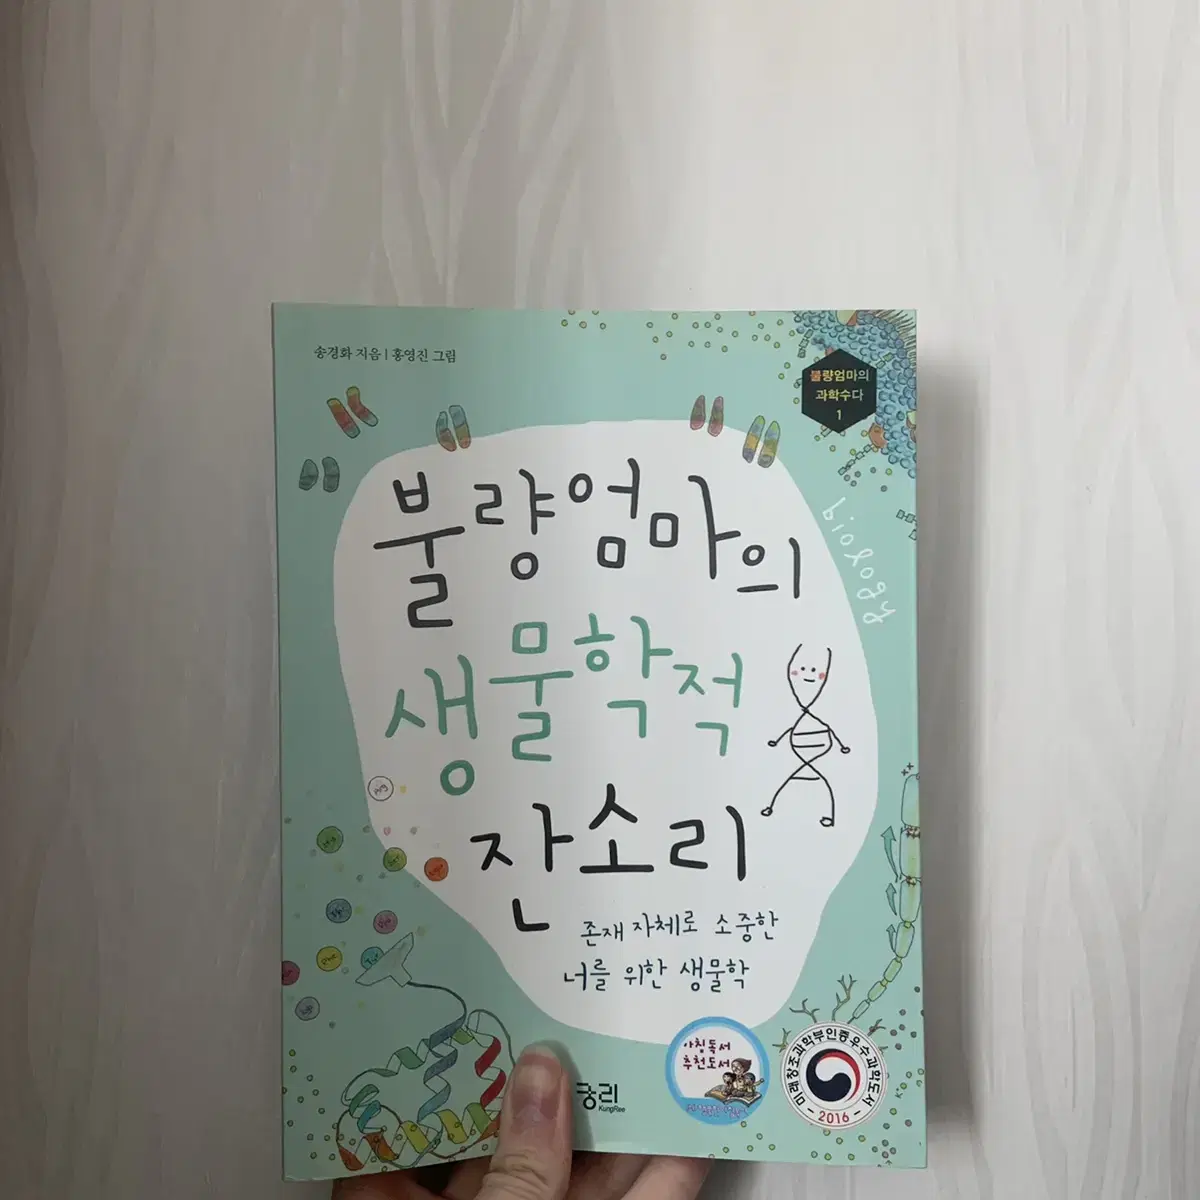 송경화 지음 | 홍영진 그림
불량엄마의
과학수다
1
불량엄마의
biology
생물학적
잔소리
존재 자체로 소중한
너를 위한 생물학
아침독서
추천도서
미래창조과학부인증우수과학도서
2016
궁리
KungRee